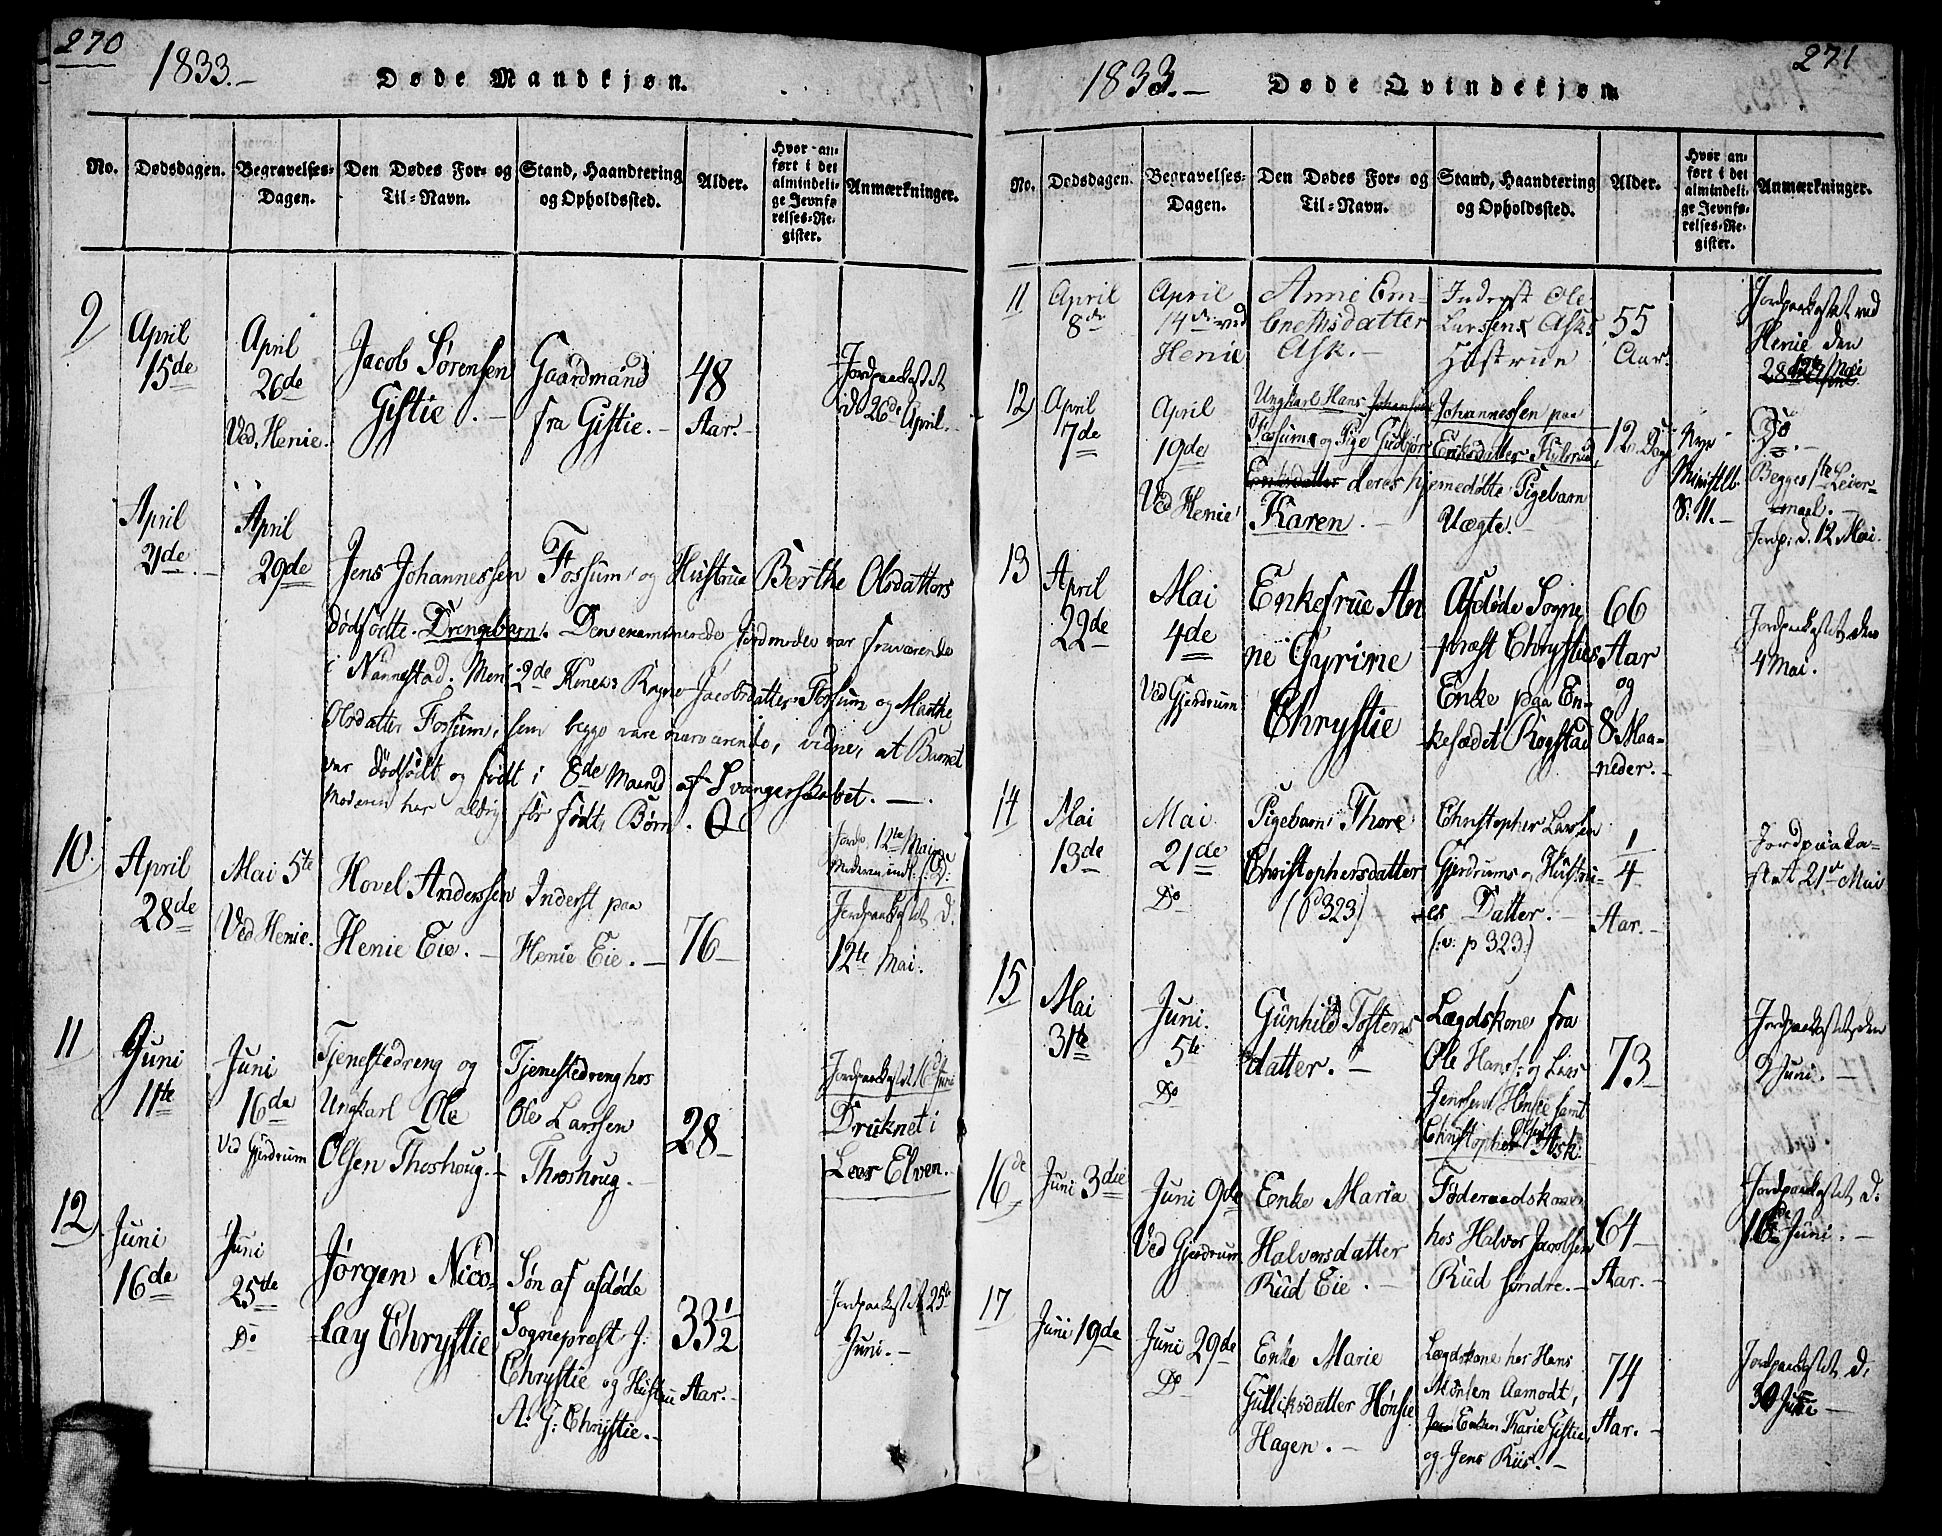 270
1833.-
Døde Mandkjøn.
No.
Dødsdagen.
Begravelses-
Dagen.
Den Dødes For- og
Til-Navn.
Stand, Haandtering
og Opholdssted.
Alder.
Hvor an-
ført i det
almindeli-
ge Jevnfø-
relses-Re-
gister.
Anmærkninger.
9
April
15de
April
26de
Ved Henie.
Jacob Sørensen
Gistie.-
Gaardmand
fra Gistie.-
48
Aar.-
Jordpaakastet
d. 26de April.
April
21de
April
29de
Jens Johannessen Fossum og Hustrue Berthe Olsdatters
dødfødte Drengebarn. Den examinerede Jordmoder var fraværende
i Nannestad. Men 2de Koner Ragne Jacobsdatter Fossum og Marthe
Olsdatter Fossum, som begge vare nærværende, vidne, at Barnet
var dødfødt og født i 8de Maaned af Svangerskabet.-
Moderen har aldrig før født Børn. 0
10.
April
28de
Mai 5te
Ved Henie.
Hovel Anderssen
Henie Eie.-
Inderst paa
Henie Eie.-
76
Jordp. 12te Mai
Moderen indl.
Jordpaakastet d.
12te Mai.
11
Juni
11te
Juni
16de
Ved Gjerdrum
Tjenestedreng og
Ungkarl Ole
Olsen Thoshoug.-
Tjenestedreng hos
Ole Larssen
Thoshoug.-
28
Jordpaakastet 16de Juni
Druknet i
Leer Elven.
12
Juni
16de
Juni
25de
Do
Jørgen Nico-
lay Chrystie
Søn af afdøde
Sogneprest J:
Chrystie og Hustrue
A: G: Chrystie.-
33 1/2
Aar.-
Jordpaakastet 25de
Juni.-
271
1833.-
Døde Qvindekjøn
No.
Dødsdagen.
Begravelses-
Dagen.
Den Dødes For- og
Til-Navn.
Stand, Haandtering
og Opholdssted.
Alder.
Hvor an-
ført i det
almindeli-
ge Jevnfø-
relses-Re-
gister.
Anmærkninger.
11
April
8de
April
14de ved
Henie
Anne Em-
brethsdatter
Ask.-
Inderst Ole
Larssens Ask
Hustrue
55
Aar.
Jordpaakastet ved
Henie den
12te Mai
12
April
7de
April
19de
Ved Henie
Ungkarl Hans Johanssen Johannessen paa
Fossum og Pige Gudbjør Eriksdatter Kulsrud,
Eriksdatter deres hjemedøbte Pigebarn
Karen.- Uægte.
12 Dage
Nye
Ministlb.
S: 11.-
Do.-
Begges 1te Leier-
maal.-
Jordp. d. 12 Mai.
13
April
22de
Mai
4de
Ved Gjerdrum
Enkefrue An
ne Gyrine
Chrystie
Afdøde Sogne
præst Chrysties
Enke paa En-
kesædet Rogstad
66
Aar
og
8 Maa-
neder.-
Jordpaakastet den
4 Mai.
14
Mai
13de
Mai
21de
Do
Pigebarn Thore
Christophersdatter
(p 323)
Christopher Larsen
Gjerdrums og Hustru-
es Datter.-
(:v: p 323:)
1/4
Aar.-
Jordpaaka-
stet 21de Mai
15
Mai
31te
Juni.
5te
Do
Gunhild Tosten
datter.-
Lægdskone fra
Ole Hans: og Lars
Jenssen Hønsie samt
Christopher Ask.
73
Jordpaakastet den
2 Juni.-
16de
Juni 3die
Juni 9de
Ved Gjerdrum
Enke Maria
Halvorsdatter
Rud Eie.-
Føderaadskone
hos Halvor Jacobsen
Rud søndre.-
64
Aar.-
Jordpaakastet d.
16de Juni.-
17
Juni 19de
Juni 29de
Do
Enke Marie
Gulliksdatter Hønsie
Hagen.-
Lægdskone hos Hans
Monsen Aamodt,
Enken Karie Gistie,
og Jens Riis.-
74
Aar.-
Jordpaakastet d.
30 Juni.-